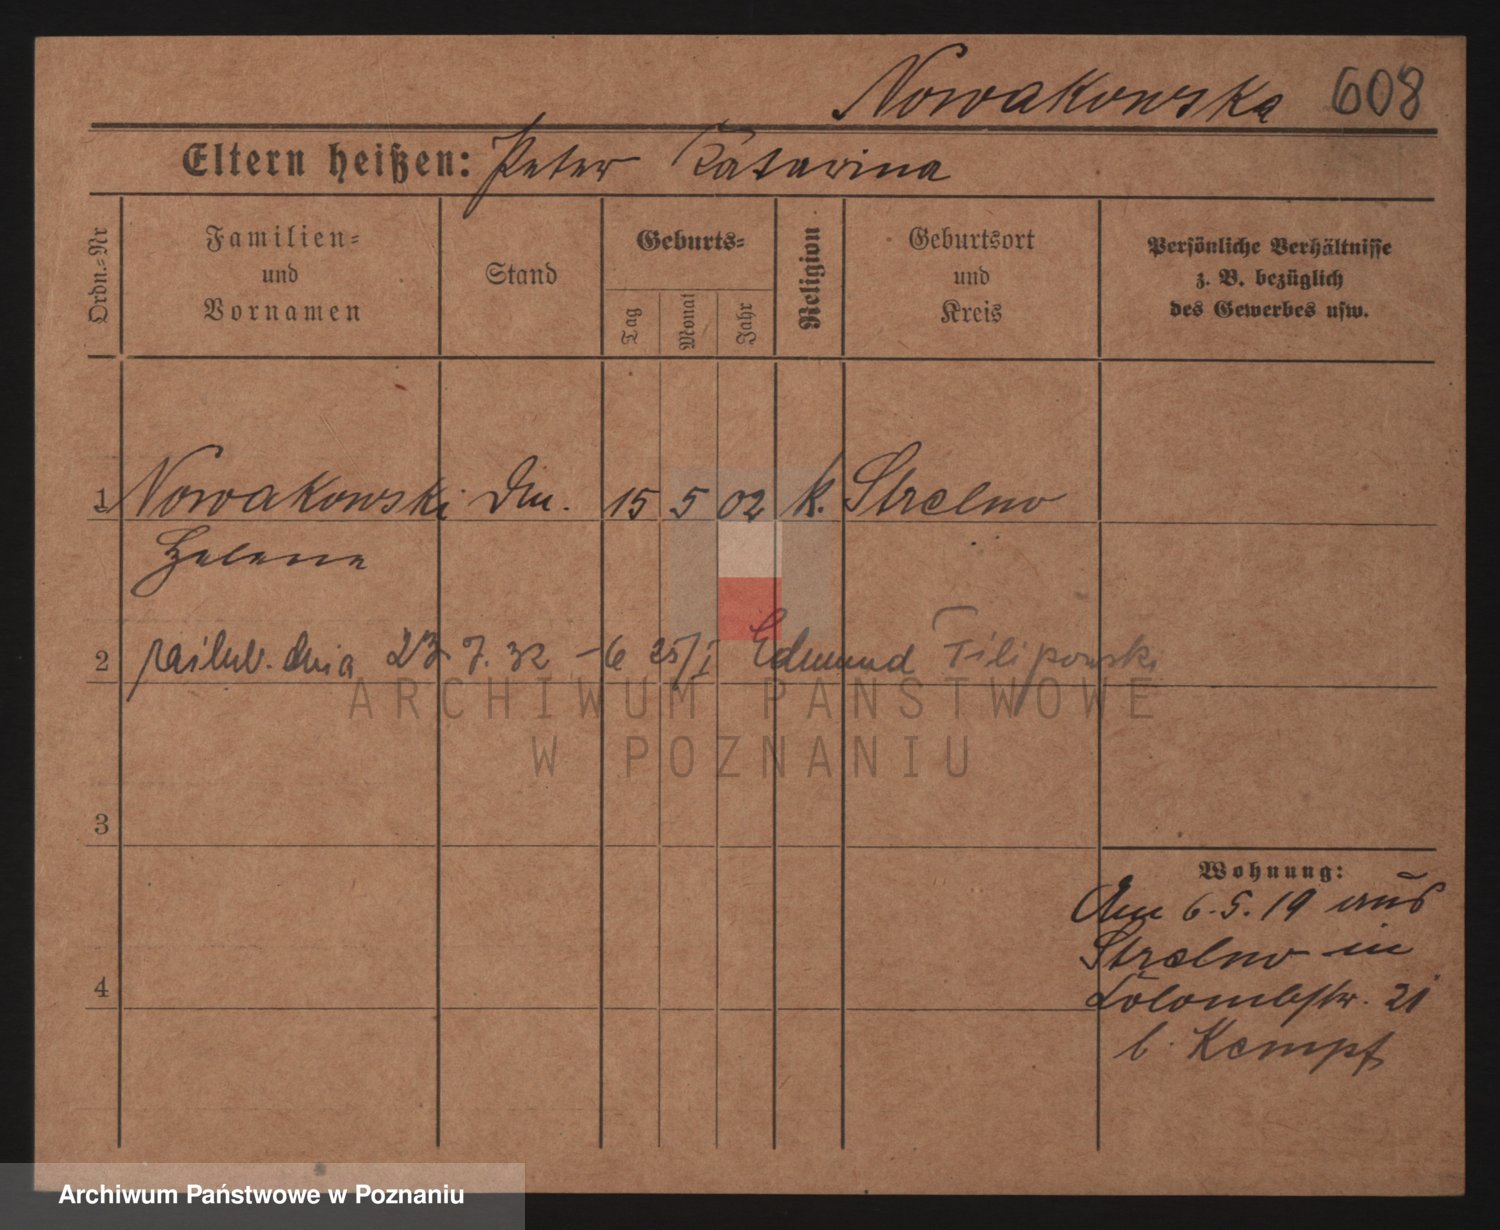 Nowakowska 608
Eltern heißen: Peter Katarina
Ordn.=Nr
Familien=
und
Vornamen
Stand
Geburts=
Tag
Monat
Jahr
Religion
Geburtsort
und
Kreis
Persönliche Verhältnisse
z. B. bezüglich
des Gewerbes usw.
1 Nowakowski Din. 15 5 02 k. Strelno
Helene
2 dnia 23 7. 32 – 6 25/I Edmund Filipowski
ARCHIWUM PAŃSTWOWE
W POZNANIU
3
Wohnung:
Am 6.5.19 aus
Strelno in
4
Colombstr. 21
b. Kempf
Archiwum Państwowe w Poznaniu